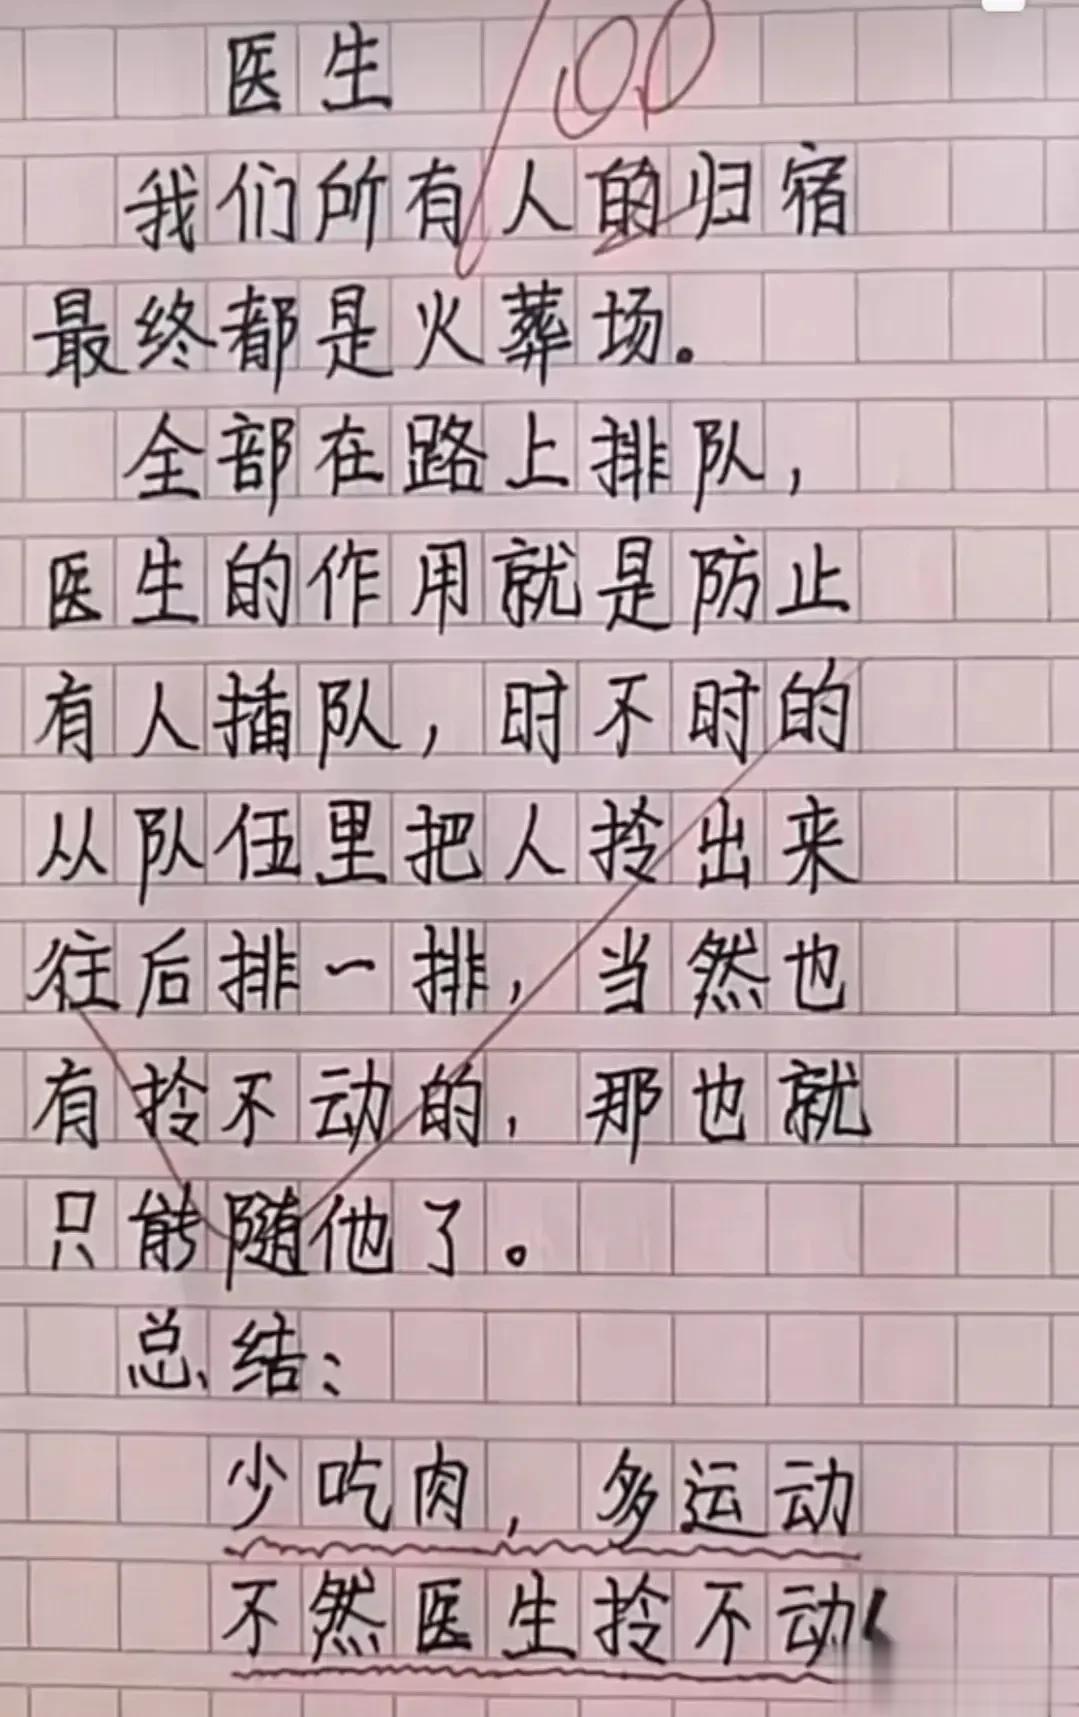 医生
100
我们所有人的归宿
最终都是火葬场。
全部在路上排队，
医生的作用就是防止
有人插队，时不时的
从队伍里把人拎出来
往后排一排，当然也
有拎不动的，那也就
只能随他了。
总结：
少吃肉，多运动
不然医生拎不动